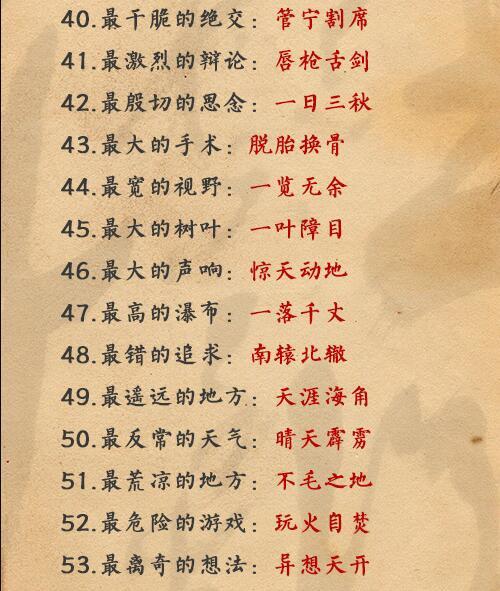 40.最干脆的绝交：管宁割席
41.最激烈的辩论：唇枪舌剑
42.最殷切的思念：一日三秋
43.最大的手术：脱胎换骨
44.最宽的视野：一览无余
45.最大的树叶：一叶障目
46.最大的声响：惊天动地
47.最高的瀑布：一落千丈
48.最错的追求：南辕北辙
49.最遥远的地方：天涯海角
50.最反常的天气：晴天霹雳
51.最荒凉的地方：不毛之地
52.最危险的游戏：玩火自焚
53.最离奇的想法：异想天开